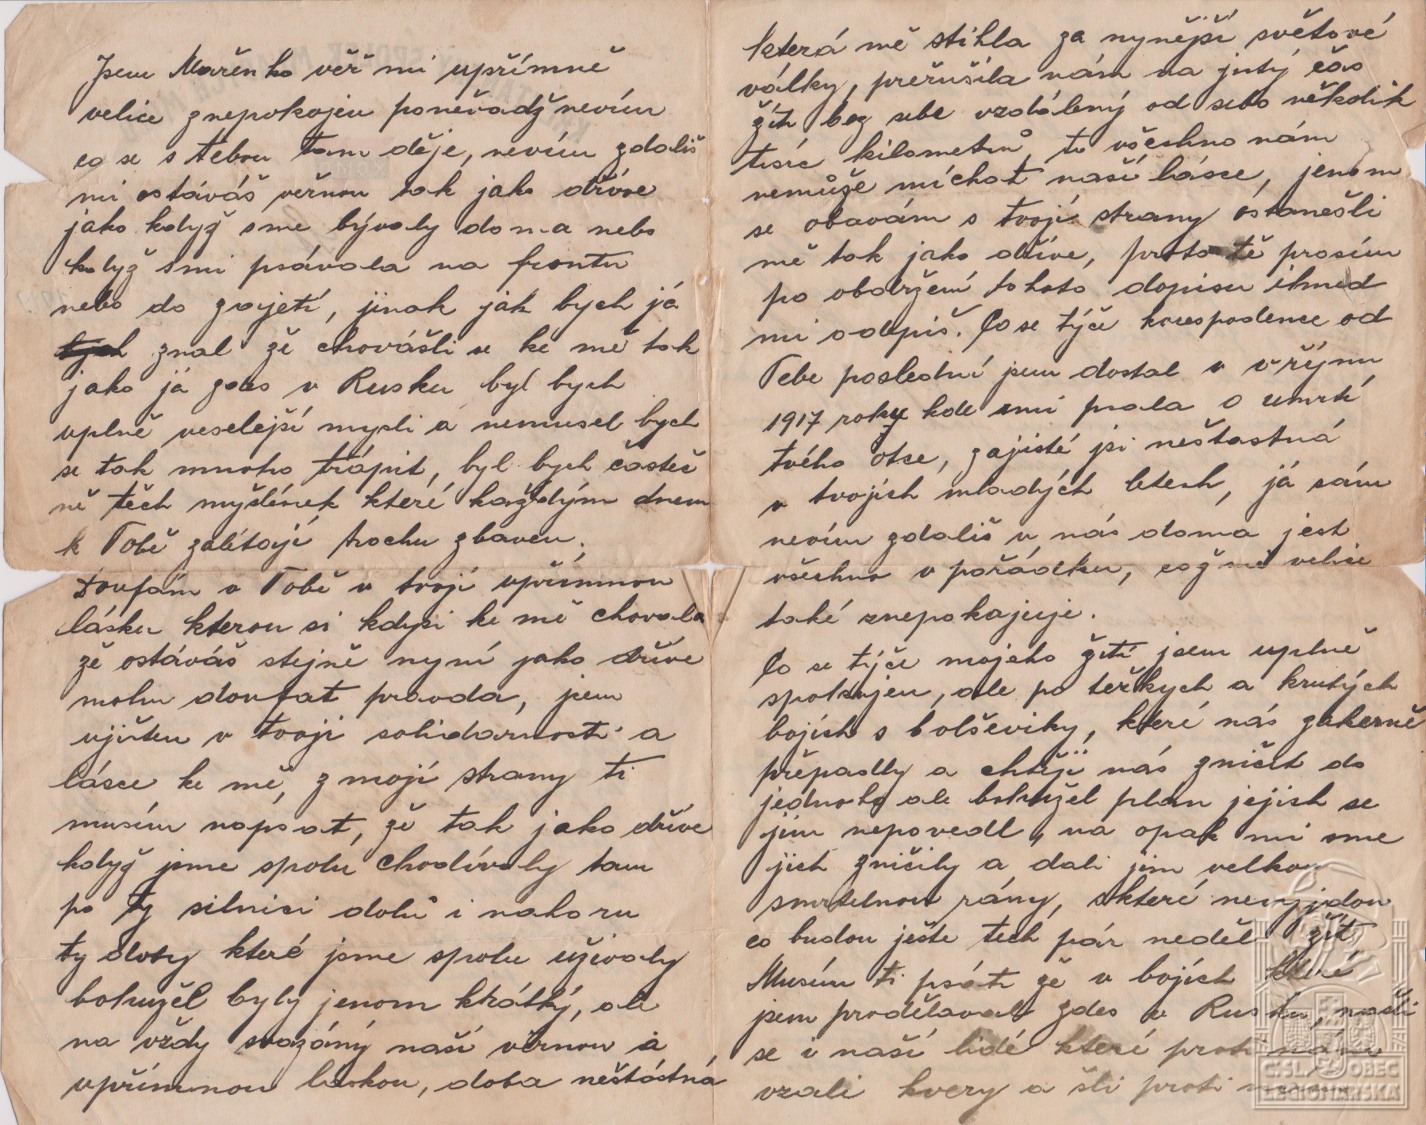 Jsem Mařenko věř mi upřímně
velice znepokojen poněvadž nevím
co se s tebou tam děje, nevím zdališ
mi ostáváš věrnou tak jako dříve
jako když sme bývaly doma nebo
když smi psávala na frontu
nebo do zajetí, jinak jak bych já
znal zě chovášli se ke mě tak
jako já zdes v Rusku byl bych
uplně veselejší mysli a nemusel bych
se tak mnoho trápit, byl bych časteč
ně těch myšlének které každým dnem
k Tobě zalítají trochu zbaven,
Doufám v Tobě v tvojí upřímnou
lásku kterou si kdysi ke mě chovala
zě ostáváš stejně nyní jako dříve
mohu doufat pravda, jsem
ujištěn v tvojí solidarnosti a
lásce ke mě, z mojí strany ti
musím napsat, žě tak jako dříve
když jsme spolu chodívaly tam
po ty silnici dolů i nahoru
ty doby které jsme spolu užívaly
bohužěl byly jenom krátký, ale
na vždy svázáný naší věrnou a
upřímnou láskou, doba neštástná
která mě stihla za nynější světové
války, přerušila nám na jistý čas
žít bez sebe vzdálený od sebe několik
tisíc kilometrů to všechno nám
nemůže míchat naší lásce, jenom
se obavám s tvojí strany ostanešli
mě tak jako dříve, proto tě prosím
po obdržení tohoto dopisu ihned
mi odpiš. Co se týče korespodence od
Tebe poslední jsem dostal v říjnu
1917 roky kde smi psala o umrtí
tvého otce, zajisté jsi neštastná
v tvojich mladých letech, já sám
nevím zdališ u nás doma jest
všechno v pořádku, což mě velice
také znepokajuje.
Co se týče mojeho žití jsem uplně
spokojen, ale po težkych a krutých
bojích s bolševiky, které nás zákeřně
přepadly a chtěji nás zničit do
jednoho ale bohužel plan jejich se
jim nepovedl, na opak mi sme
jich zničily a dali jim velkou
smrtelnou rány, s které nevyjdou
co budou ješte tech pár neděl žít
Musím ti psáti žě v bojích které
jsem prodělaval zdes v Rusku, našli
se i naší lidé které proti nám
vzali kvery a šli proti
ČSL. OBEC
LEGIONÁŘSKÁ